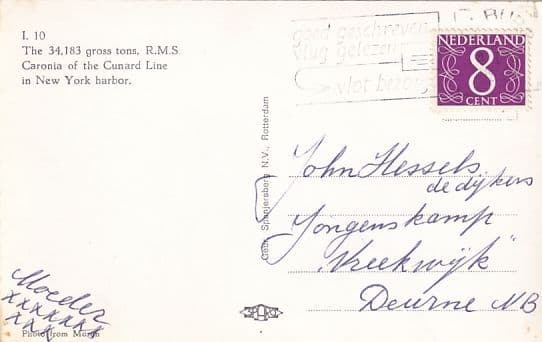 I. 10
The 34,183 gross tons, R.M.S.
Caronia of the Cunard Line
in New York harbor.
goed geschreven
vlug gelezen
vlot bezorgd
NEDERLAND
8
CENT
Gebr. Spanjersberg N.V., Rotterdam
John Hessels
de dijkers
Jongenskamp
"Vreekwijk"
Deurne NB
Moeder
xxxxxxx
xxx
Photo from Monk
SPARO